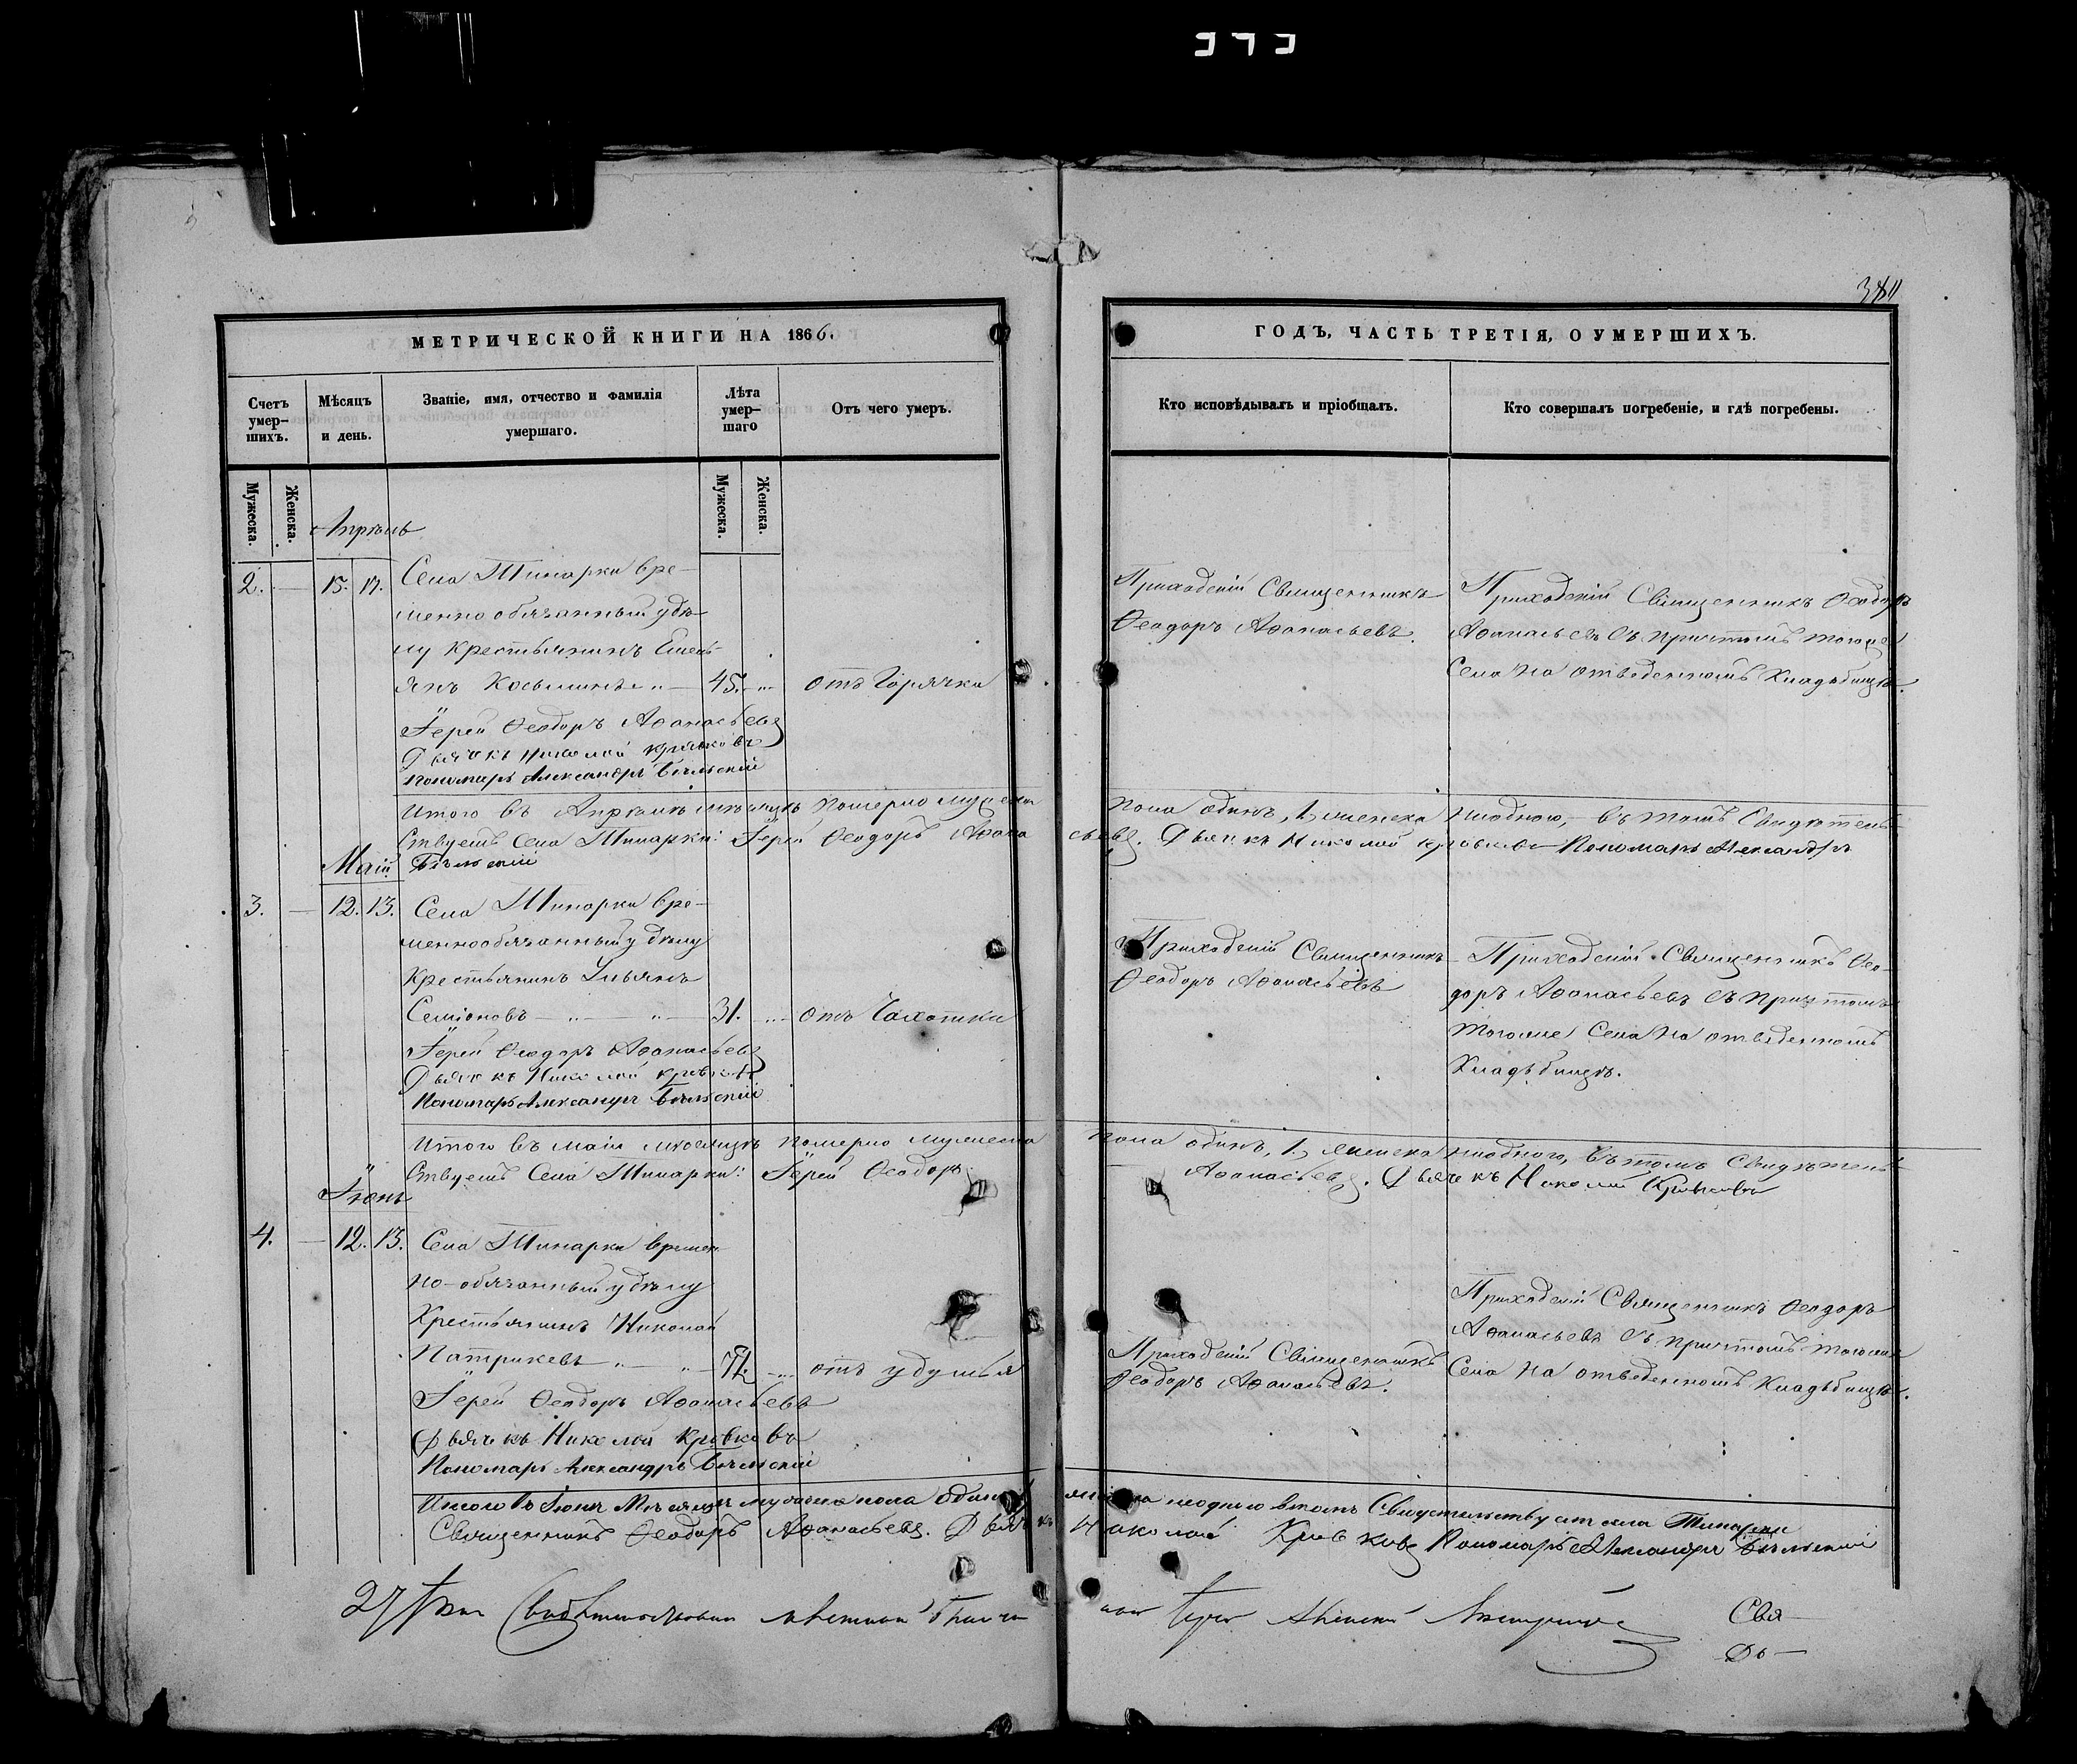 381
МЕТРИЧЕСКОЙ КНИГИ НА 1866.
ГОДЪ, ЧАСТЬ ТРЕТІЯ, О УМЕРШИХЪ.
Счетъ умер-
шихъ.
Мѣсяцъ
и день.
Званіе, имя, отчество и фамилія
умершаго.
Лѣта
умер-
шаго
Отъ чего умеръ.
Кто исповѣдывалъ и пріобщалъ.
Кто совершалъ погребеніе, и гдѣ погребены.
Мужеска.
Женска.
Мужеска.
Женска.
Апрѣль
2. — 15. 17. Села Тинарки вре-
менно обязанный удѣ-
лу крестьянинъ Емель-
янъ Косьминъ „ — 45. „ отъ Горячки
Іерей Ѳеодоръ Аѳанасьевъ
Дьячекъ Николай Кривковъ
Пономарь Александръ Бѣльскій
Приходскій Священникъ
Ѳеодоръ Аѳанасьевъ.
Приходскій Священникъ Ѳеодоръ
Аѳанасьевъ съ причтомъ тогоже
Села на отведенномъ Кладбищѣ.
Итого въ Апрѣлѣ мѣсяцѣ померло мужеска пола одинъ, 1, женска ниодного, — въ томъ Свидѣтель-
ствуемъ Села Тинарки: Іерей Ѳеодоръ Аѳанасьевъ. Дьячекъ Николай Кривковъ Пономарь Александръ
Бѣльскій
Маій
3. — 12. 13. Села Тинарки вре-
меннообязанный удѣлу
Крестьянинъ Ульянъ
Семіоновъ — „ — „ — 31. „ отъ Чахотки
Іерей Ѳеодоръ Аѳанасьевъ
Дьячекъ Николай Кривковъ
Пономарь Александръ Бѣльскій
Приходскій Священникъ
Ѳеодоръ Аѳанасьевъ
Приходскій Священникъ Ѳео-
доръ Аѳанасьевъ съ причтомъ
тогоже Села на отведенномъ
Кладбищѣ.
Итого въ маіи мѣсяцѣ померло мужеска пола одинъ, 1, женска ниодного, въ томъ Свидѣтель-
ствуемъ Села Тинарки: Іерей Ѳеодоръ Аѳанасьевъ. Дьячекъ Николай Кривковъ
Іюнь
4. — 12. 13. Села Тинарки времен-
но-обязанный удѣлу
Крестьянинъ Николай
Патрикевъ „ — „ — отъ удушья
Іерей Ѳеодоръ Аѳанасьевъ
Дьячекъ Николай Кривковъ
Пономарь Александръ Бѣльскій
Приходскій Священникъ
Ѳеодоръ Аѳанасьевъ.
Приходскій Священникъ Ѳеодоръ
Аѳанасьевъ съ причтомъ тогоже
Села на отведенномъ Кладбищѣ.
Итого въ Іюнѣ Мѣсяцѣ мужеска пола одинъ женска ниодного втомъ Свидѣтельствуемъ села Тинарки
Священникъ Ѳеодоръ Аѳанасьевъ. Дьячекъ Николай Кривковъ Пономарь Александръ Бѣльскій
27
Свя—
Дь—